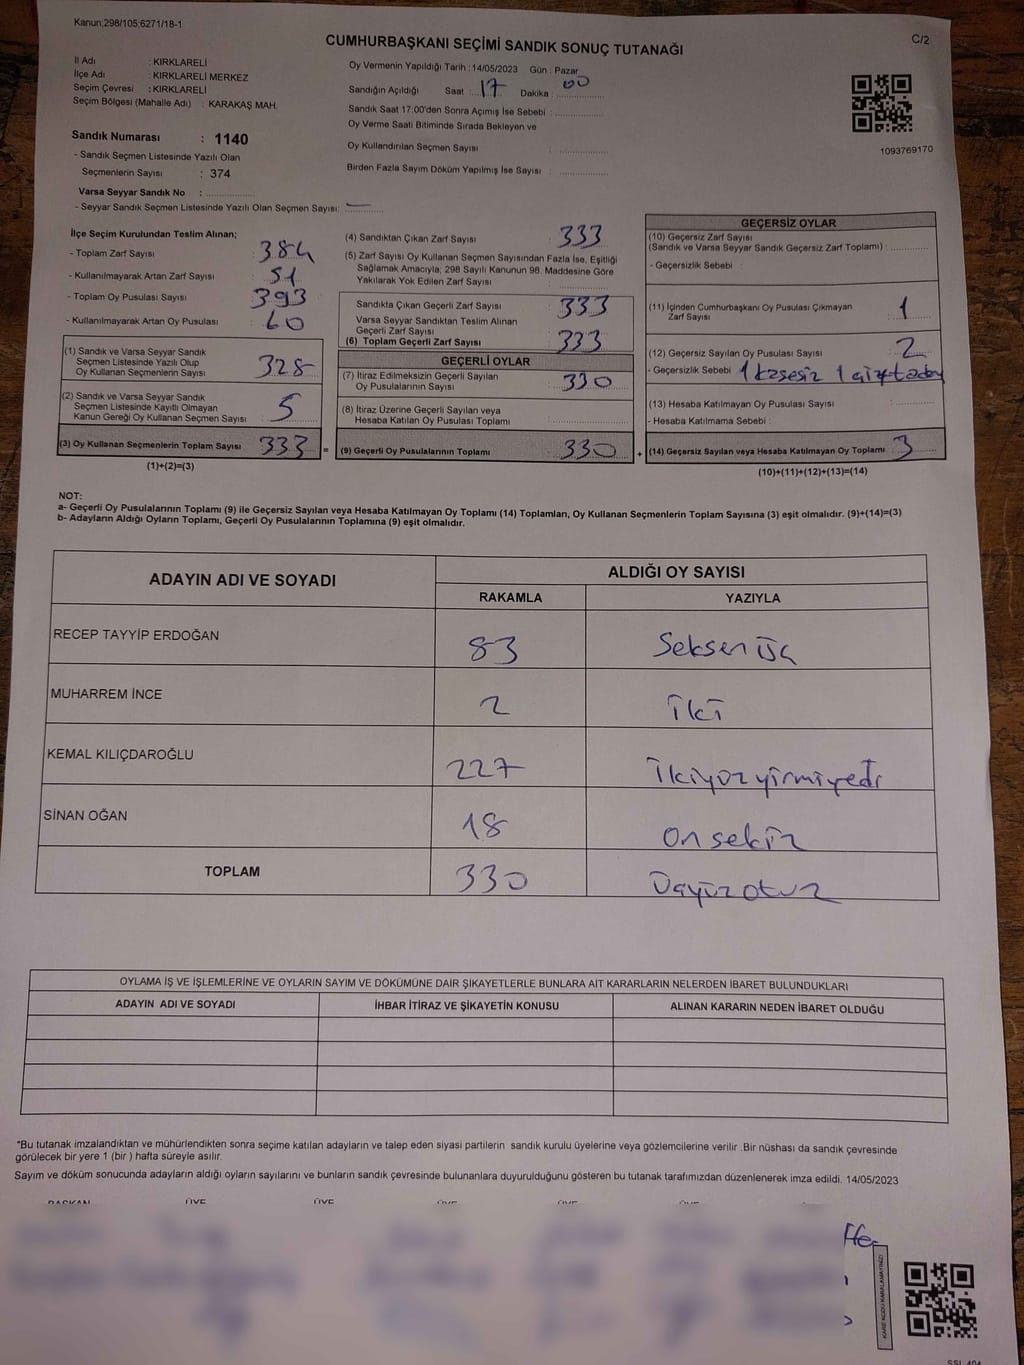 Kanun;298/105;6271/18-1
C/2
CUMHURBAŞKANI SEÇİMİ SANDIK SONUÇ TUTANAĞI
İl Adı : KIRKLARELİ
İlçe Adı : KIRKLARELİ MERKEZ
Seçim Çevresi : KIRKLARELİ
Seçim Bölgesi (Mahalle Adı) : KARAKAŞ MAH.
Sandık Numarası : 1140
- Sandık Seçmen Listesinde Yazılı Olan
Seçmenlerin Sayısı : 374
Varsa Seyyar Sandık No : ..............
- Seyyar Sandık Seçmen Listesinde Yazılı Olan Seçmen Sayısı: —
Oy Vermenin Yapıldığı Tarih : 14/05/2023 Gün : Pazar
Sandığın Açıldığı Saat : 17 Dakika : 00
Sandık Saat 17:00'den Sonra Açımış İse Sebebi : ..............
Oy Verme Saati Bitiminde Sırada Bekleyen ve
Oy Kullandırılan Seçmen Sayısı : ..............
Birden Fazla Sayım Döküm Yapılmış İse Sayısı : ..............
1093769170
İlçe Seçim Kurulundan Teslim Alınan;
- Toplam Zarf Sayısı : 384
- Kullanılmayarak Artan Zarf Sayısı : 51
- Toplam Oy Pusulası Sayısı : 393
- Kullanılmayarak Artan Oy Pusulası : 60
(1) Sandık ve Varsa Seyyar Sandık
Seçmen Listesinde Yazılı Olup
Oy Kullanan Seçmenlerin Sayısı : 328
(2) Sandık ve Varsa Seyyar Sandık
Seçmen Listesinde Kayıtlı Olmayan
Kanun Gereği Oy Kullanan Seçmen Sayısı : 5
(3) Oy Kullanan Seçmenlerin Toplam Sayısı : 333
(1)+(2)=(3)
(4) Sandıktan Çıkan Zarf Sayısı : 333
(5) Zarf Sayısı Oy Kullanan Seçmen Sayısından Fazla İse, Eşitliği
Sağlamak Amacıyla; 298 Sayılı Kanunun 98. Maddesine Göre
Yakılarak Yok Edilen Zarf Sayısı : ..............
Sandıkta Çıkan Geçerli Zarf Sayısı : 333
Varsa Seyyar Sandıktan Teslim Alınan
Geçerli Zarf Sayısı
(6) Toplam Geçerli Zarf Sayısı : 333
GEÇERLİ OYLAR
(7) İtiraz Edilmeksizin Geçerli Sayılan
Oy Pusulalarının Sayısı : 330
(8) İtiraz Üzerine Geçerli Sayılan veya
Hesaba Katılan Oy Pusulası Toplamı : ..............
= (9) Geçerli Oy Pusulalarının Toplamı : 330 +
GEÇERSİZ OYLAR
(10) Geçersiz Zarf Sayısı
(Sandık ve Varsa Seyyar Sandık Geçersiz Zarf Toplamı) : ..............
- Geçersizlik Sebebi :
(11) İçinden Cumhurbaşkanı Oy Pusulası Çıkmayan
Zarf Sayısı : 1
(12) Geçersiz Sayılan Oy Pusulası Sayısı : 2
- Geçersizlik Sebebi : 1 kaşesiz 1 çift aday
(13) Hesaba Katılmayan Oy Pusulası Sayısı : ..............
- Hesaba Katılmama Sebebi :
(14) Geçersiz Sayılan veya Hesaba Katılmayan Oy Toplamı : 3
(10)+(11)+(12)+(13)=(14)
NOT:
a- Geçerli Oy Pusulalarının Toplamı (9) ile Geçersiz Sayılan veya Hesaba Katılmayan Oy Toplamı (14) Toplamları, Oy Kullanan Seçmenlerin Toplam Sayısına (3) eşit olmalıdır. (9)+(14)=(3)
b- Adayların Aldığı Oyların Toplamı, Geçerli Oy Pusulalarının Toplamına (9) eşit olmalıdır.
ADAYIN ADI VE SOYADI ALDIĞI OY SAYISI
RAKAMLA YAZIYLA
RECEP TAYYİP ERDOĞAN 83 Seksen üç
MUHARREM İNCE 2 İki
KEMAL KILIÇDAROĞLU 227 İkiyüzyirmiyedi
SİNAN OĞAN 18 Onsekiz
TOPLAM 330 Üçyüzotuz
OYLAMA İŞ VE İŞLEMLERİNE VE OYLARIN SAYIM VE DÖKÜMÜNE DAİR ŞİKAYETLERLE BUNLARA AİT KARARLARIN NELERDEN İBARET BULUNDUKLARI
ADAYIN ADI VE SOYADI İHBAR İTİRAZ VE ŞİKAYETİN KONUSU ALINAN KARARIN NEDEN İBARET OLDUĞU
*Bu tutanak imzalandıktan ve mühürlendikten sonra seçime katılan adayların ve talep eden siyasi partilerin sandık kurulu üyelerine veya gözlemcilerine verilir .Bir nüshası da sandık çevresinde
görülecek bir yere 1 (bir ) hafta süreyle asılır.
Sayım ve döküm sonucunda adayların aldığı oyların sayılarını ve bunların sandık çevresinde bulunanlara duyurulduğunu gösteren bu tutanak tarafımızdan düzenlenerek imza edildi. 14/05/2023
BAŞKAN ÜYE ÜYE ÜYE ÜYE ÜYE
KARE KODU KARALAMAYINIZ!